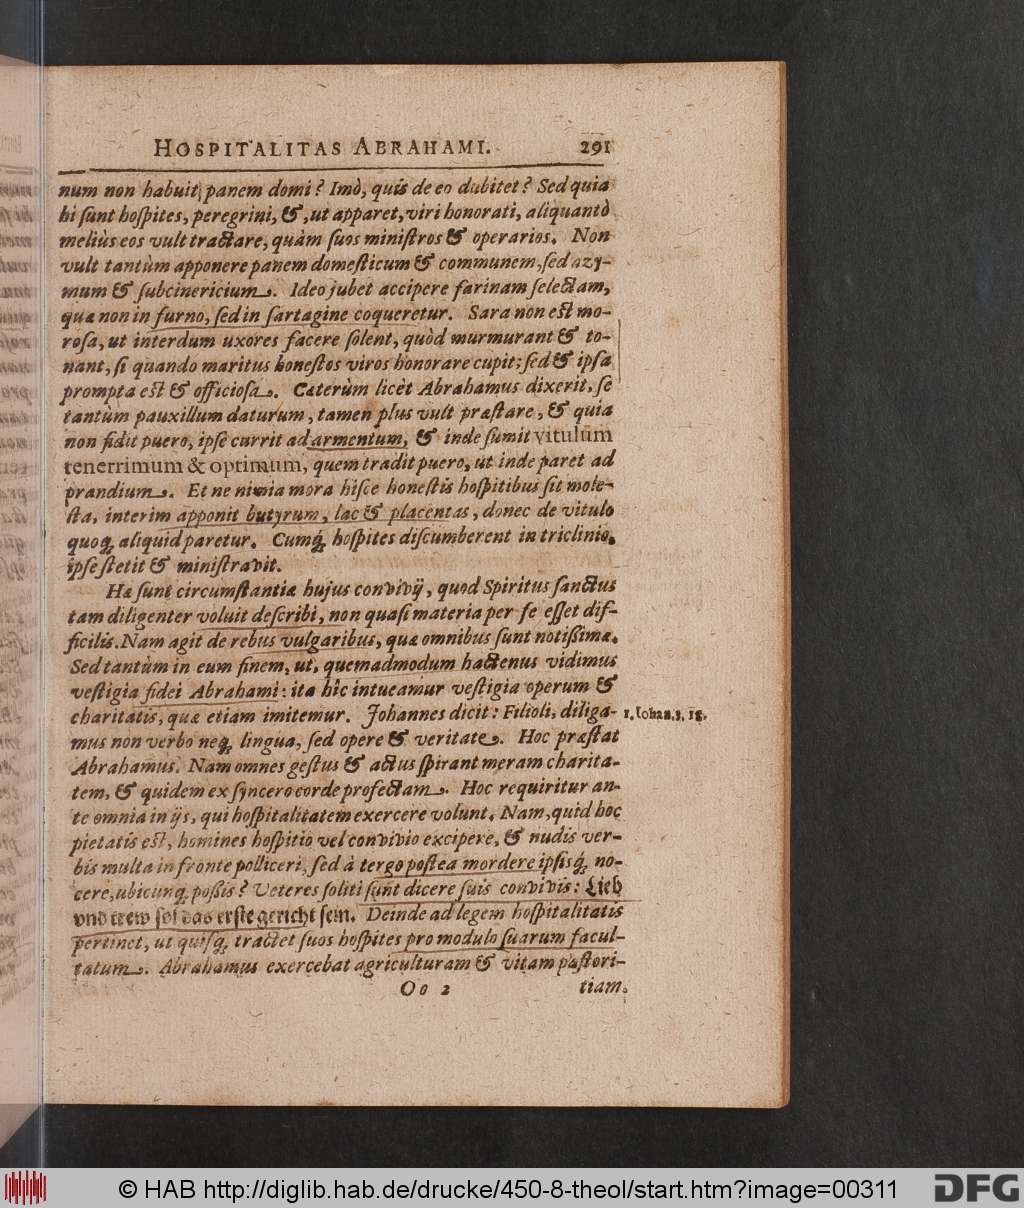 HOSPITALITAS ABRAHAMI. 291
num non habuit panem domi? Imò, quis de eo dubitet? Sed quia
hi ſunt hoſpites, peregrini, &, ut apparet, viri honorati, aliquantò
meliùs eos vult tractare, quàm ſuos miniſtros & operarios. Non
vult tantùm apponere panem domeſticum & communem, ſed azy-
mum & ſubcinericium. Ideo jubet accipere farinam ſelectam,
quæ non in furno, ſed in ſartagine coqueretur. Sara non eſt mo-
roſa, ut interdum uxores facere ſolent, quòd murmurant & to-
nant, ſi quando maritus honeſtos viros honorare cupit; ſed & ipſa
prompta eſt & officioſa. Cæterùm licèt Abrahamus dixerit, ſe
tantùm pauxillum daturum, tamen plus vult præſtare, & quia
non fidit puero, ipſe currit ad armentum, & inde ſumit vitulum
tenerrimum & optimum, quem tradit puero, ut inde paret ad
prandium. Et ne nimia mora hiſce honeſtis hoſpitibus ſit mole-
ſta, interim apponit butyrum, lac & placentas, donec de vitulo
quoq; aliquid paretur. Cumq́; hoſpites diſcumberent in triclinio,
ipſe ſtetit & miniſtravit.
Hæ ſunt circumſtantiæ hujus convivij, quod Spiritus ſanctus
tam diligenter voluit deſcribi, non quaſi materia per ſe eſſet dif-
ficilis. Nam agit de rebus vulgaribus, quæ omnibus ſunt notißimæ.
Sed tantùm in eum finem, ut, quemadmodum hactenus vidimus
veſtigia fidei Abrahami: ita hîc intueamur veſtigia operum &
charitatis, quæ etiam imitemur. Johannes dicit: Filioli, diliga-
1. Johan. 3, 18.
mus non verbo neq; lingua, ſed opere & veritate. Hoc præſtat
Abrahamus. Nam omnes geſtus & actus ſpirant meram charita-
tem, & quidem ex ſyncero corde profectam. Hoc requiritur an-
te omnia in ijs, qui hoſpitalitatem exercere volunt. Nam, quid hoc
pietatis eſt, homines hoſpitio vel convivio excipere, & nudis ver-
bis multa in fronte polliceri, ſed à tergo poſtea mordere ipſisq́; no-
cere, ubicunq; poßis? Veteres ſoliti ſunt dicere ſuis convivis: Lieb
vnd trew ſol das erſte gericht ſein. Deinde ad legem hoſpitalitatis
pertinet, ut quiſq; tractet ſuos hoſpites pro modulo ſuarum facul-
tatum. Abrahamus exercebat agriculturam & vitam paſtori-
Oo 2 tiam.
© HAB http://diglib.hab.de/drucke/450-8-theol/start.htm?image=00311
DFG